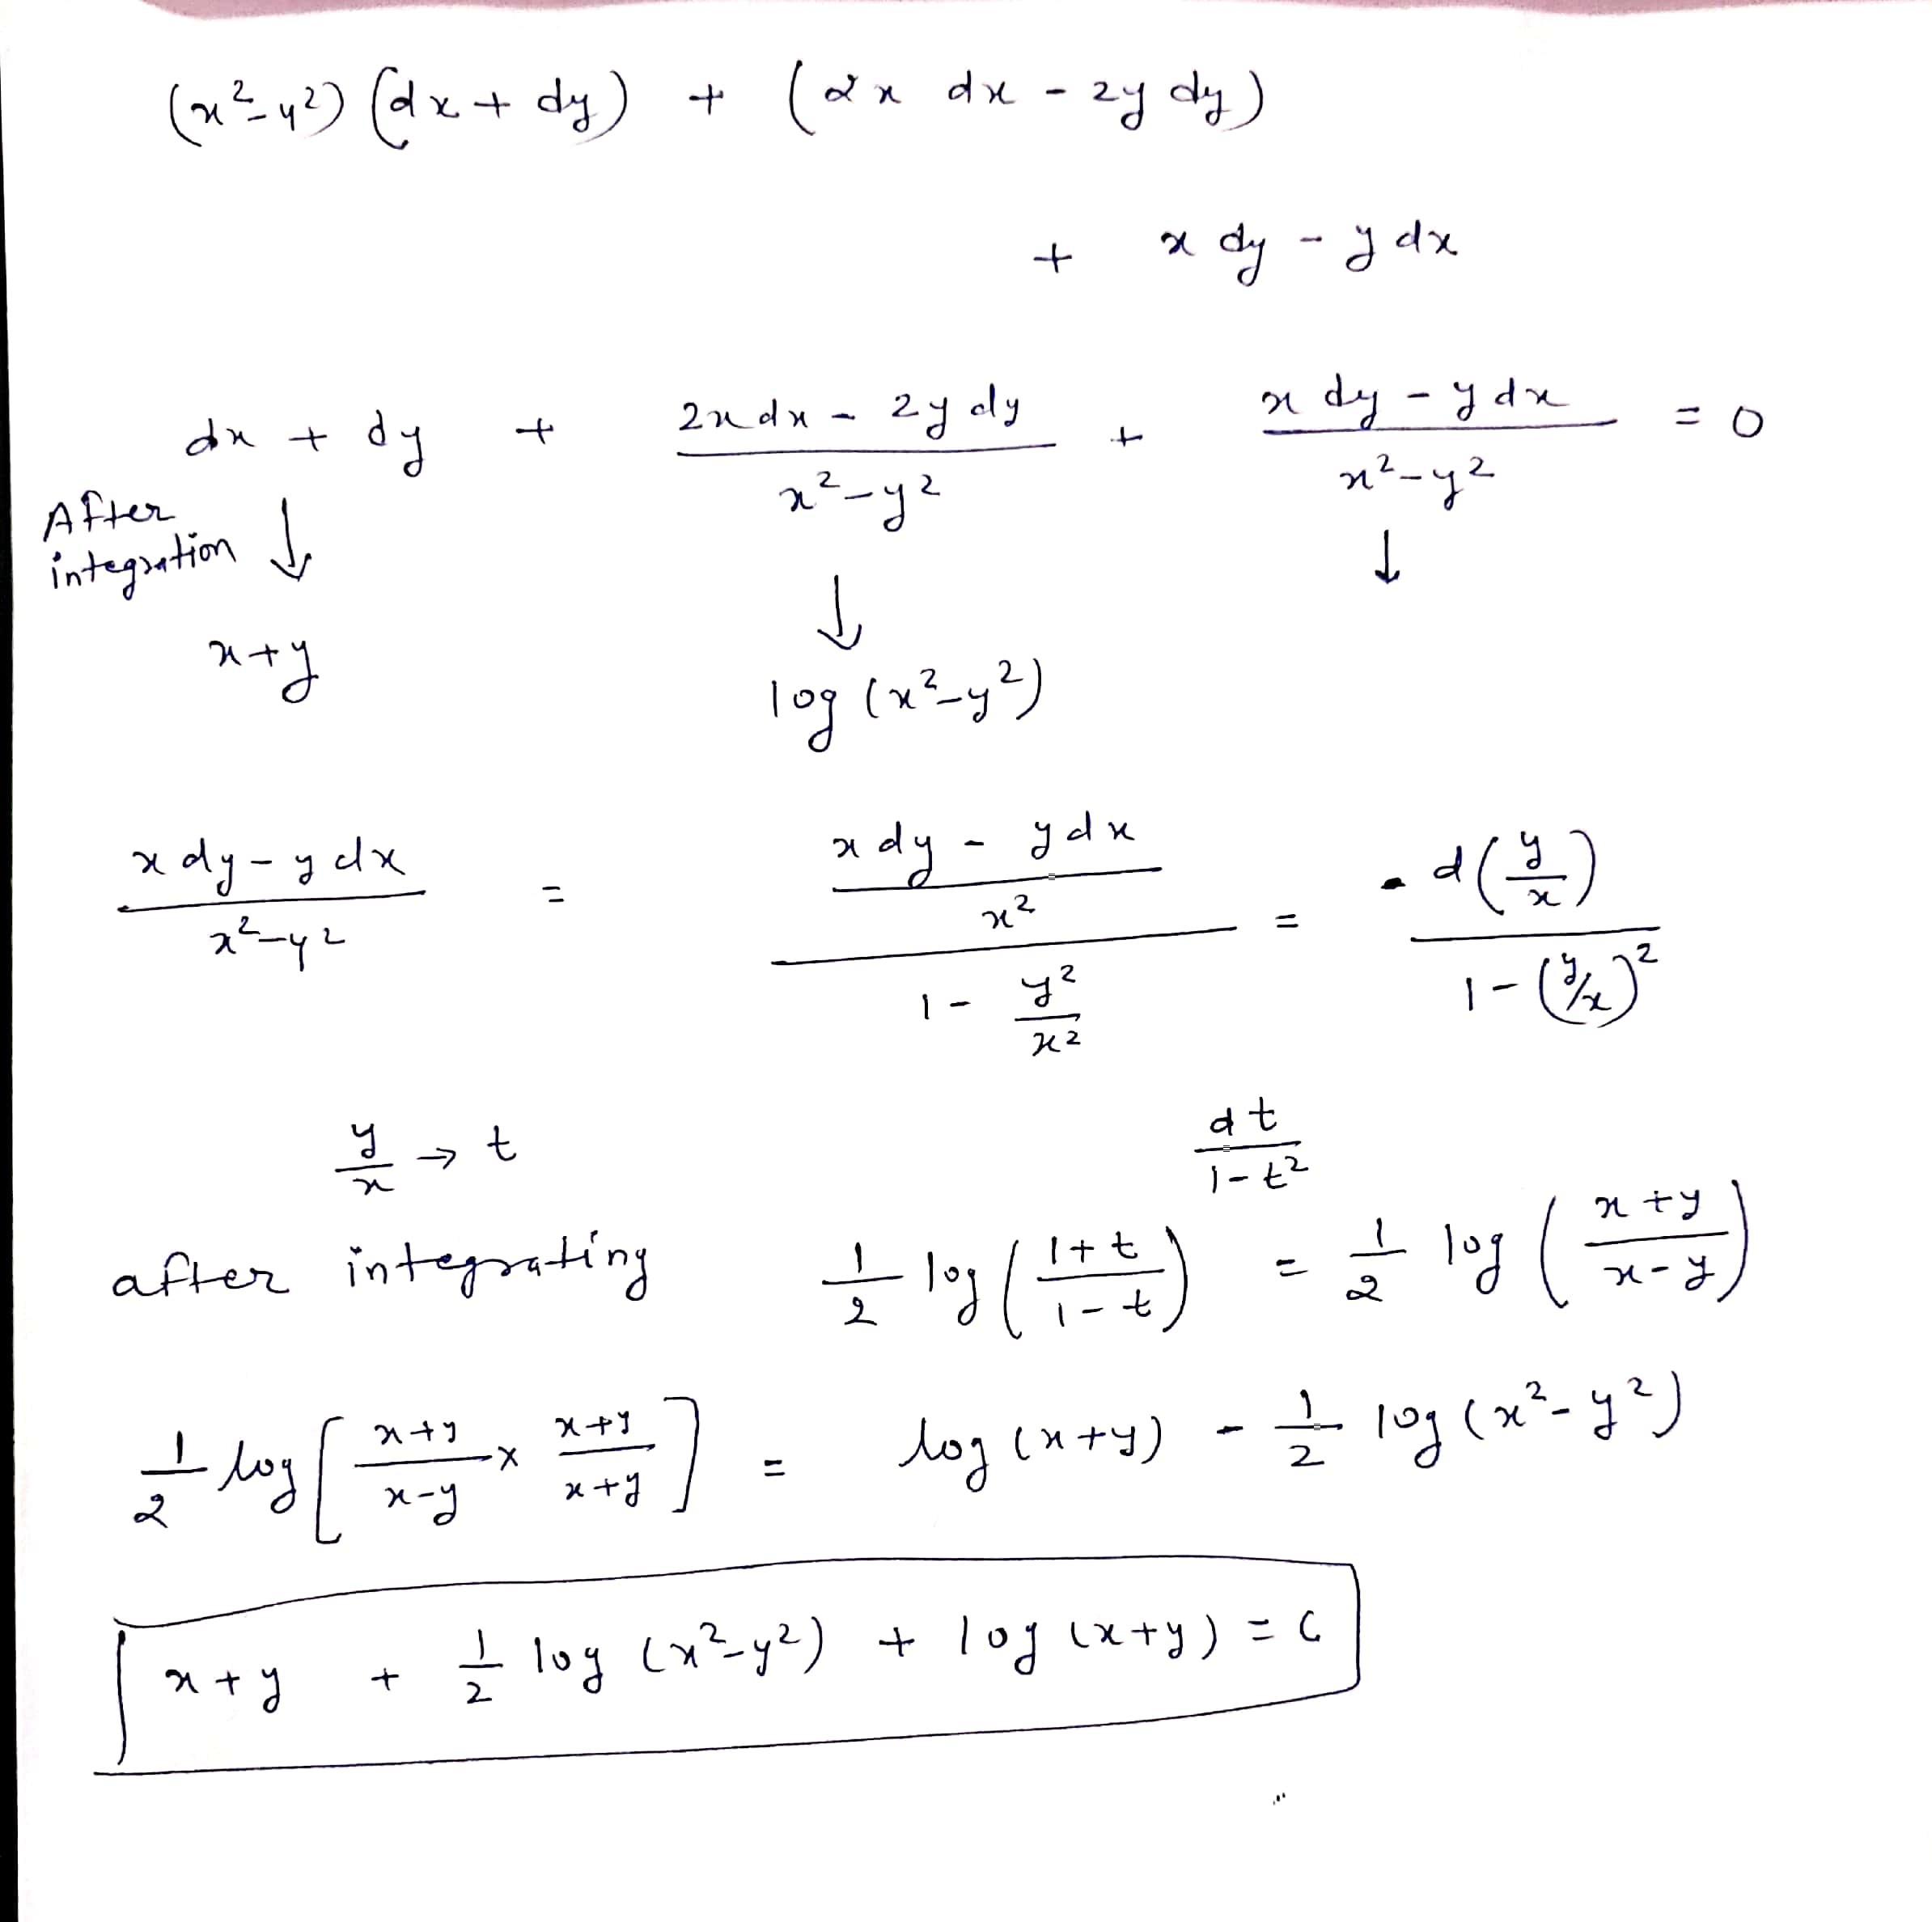 (x²-y²) (dx + dy) + (2x dx - 2y dy)
+ x dy - y dx
dx + dy + (2x dx - 2y dy)/(x²-y²) + (x dy - y dx)/(x²-y²) = 0
After integration ↓ ↓ ↓
x+y log (x²-y²)
(x dy - y dx)/(x²-y²) = ((x dy - y dx)/x²)/(1 - y²/x²) = d(y/x)/(1-(y/x)²)
y/x → t dt/(1-t²)
after integrating 1/2 log((1+t)/(1-t)) = 1/2 log((x+y)/(x-y))
1/2 log[(x+y)/(x-y) x (x+y)/(x+y)] = log (x+y) - 1/2 log (x²-y²)
x+y + 1/2 log (x²-y²) + log (x+y) = C